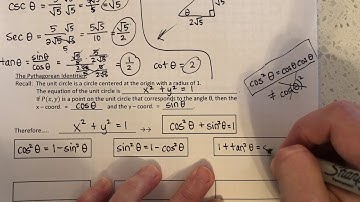 csc θ = √5 √5 = √5
θ
2√5
sec θ = 5 / 2√5 √5 = 5√5 / 10 = √5 / 2
tan θ = sin θ / cos θ = = 1/2 cot θ = 2
The Pythagorean Identities
Recall: The unit circle is a circle centered at the origin with a radius of 1.
The equation of the unit circle is x² + y² = 1
If P(x, y) is a point on the unit circle that corresponds to the angle θ, then the
x – coord. = cos θ and the y – coord. = sin θ
cos²θ = cos θ cos θ
≠ cos(θ)²
Therefore.... x² + y² = 1 →→ cos²θ + sin²θ = 1
cos²θ = 1 − sin²θ sin²θ = 1 − cos²θ 1 + tan²θ =